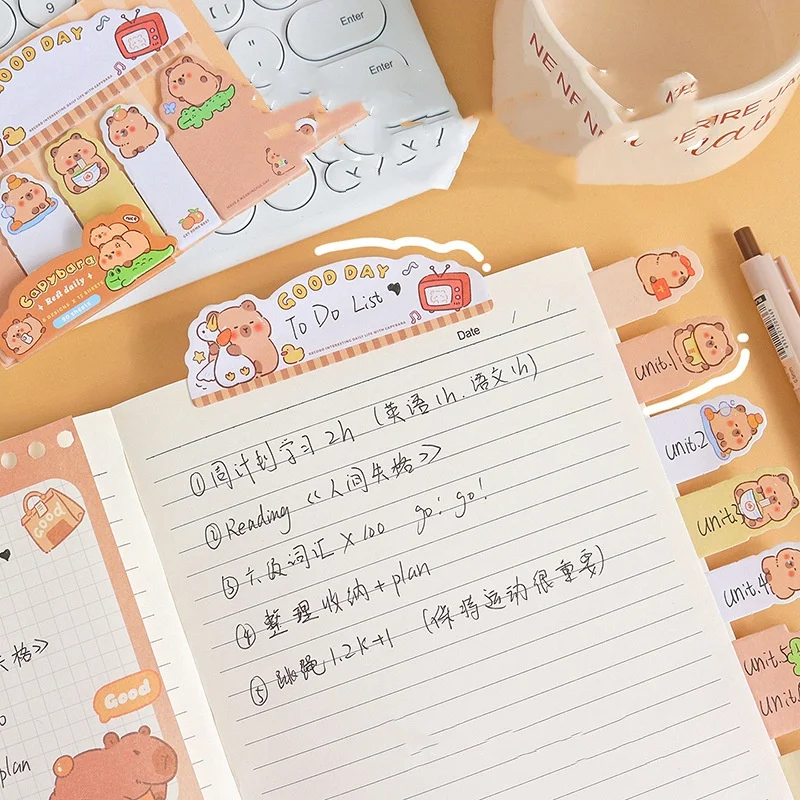 GOOD DAY
RECORD INTERESTING DAILY LIFE WITH CAPYBARA
Enter
Enter
Capybara
Rest daily
GOOD DAY
To Do List
RECORD INTERESTING DAILY LIFE WITH CAPYBARA
Date / /
①周计划学习2h (英语1h.语文1h)
②Reading 《人间失格》
③六级词汇×100 go! go!
④整理收纳+plan
⑤跳绳1.2k+1 (保持运动很重要)
unit.1
unit.2
unit.3
unit.4
unit.5
unit.
good
失格》
plan
Good